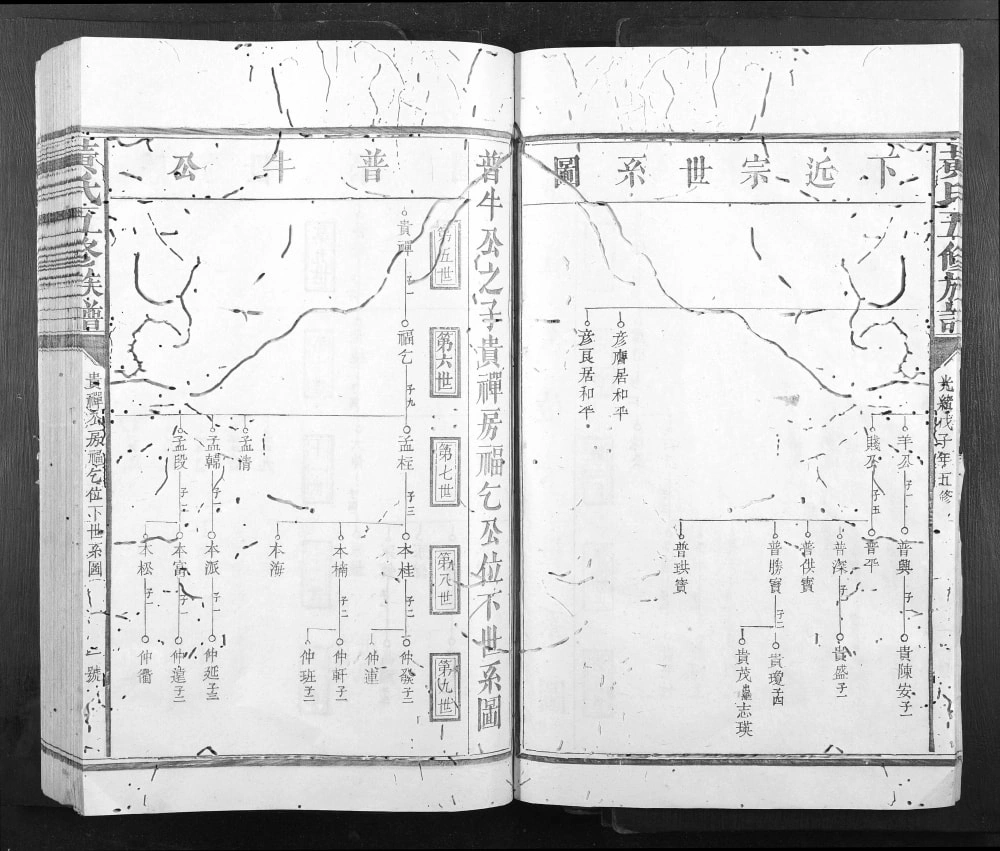 黃氏五修族譜
光緒戊子年五修
下近宗世系圖
羊公 子一
普興 子一
貴陳安子一
賤公 子五
普平
普深 子一
貴盛子二
普供寶
普勝寶 子二
貴瓊子四
貴茂 志瑛
普珙寶
彥膺居和平
彥良居和平
普牛公之子貴禪房福乞公位下世系圖
普牛公
第五世
第六世
第七世
第八世
第九世
貴禪 子一
福乞 子九
孟柱 子三
本桂 子二
仲發子二
仲連
本楠 子二
仲軒子二
仲班子二
本海
孟清
孟韓 子一
本派 子一
仲延子三
孟段 子二
本富 子一
仲遠子二
本松 子一
仲衢
黃氏五修族譜
貴禪公房福乞位下世系圖
一號